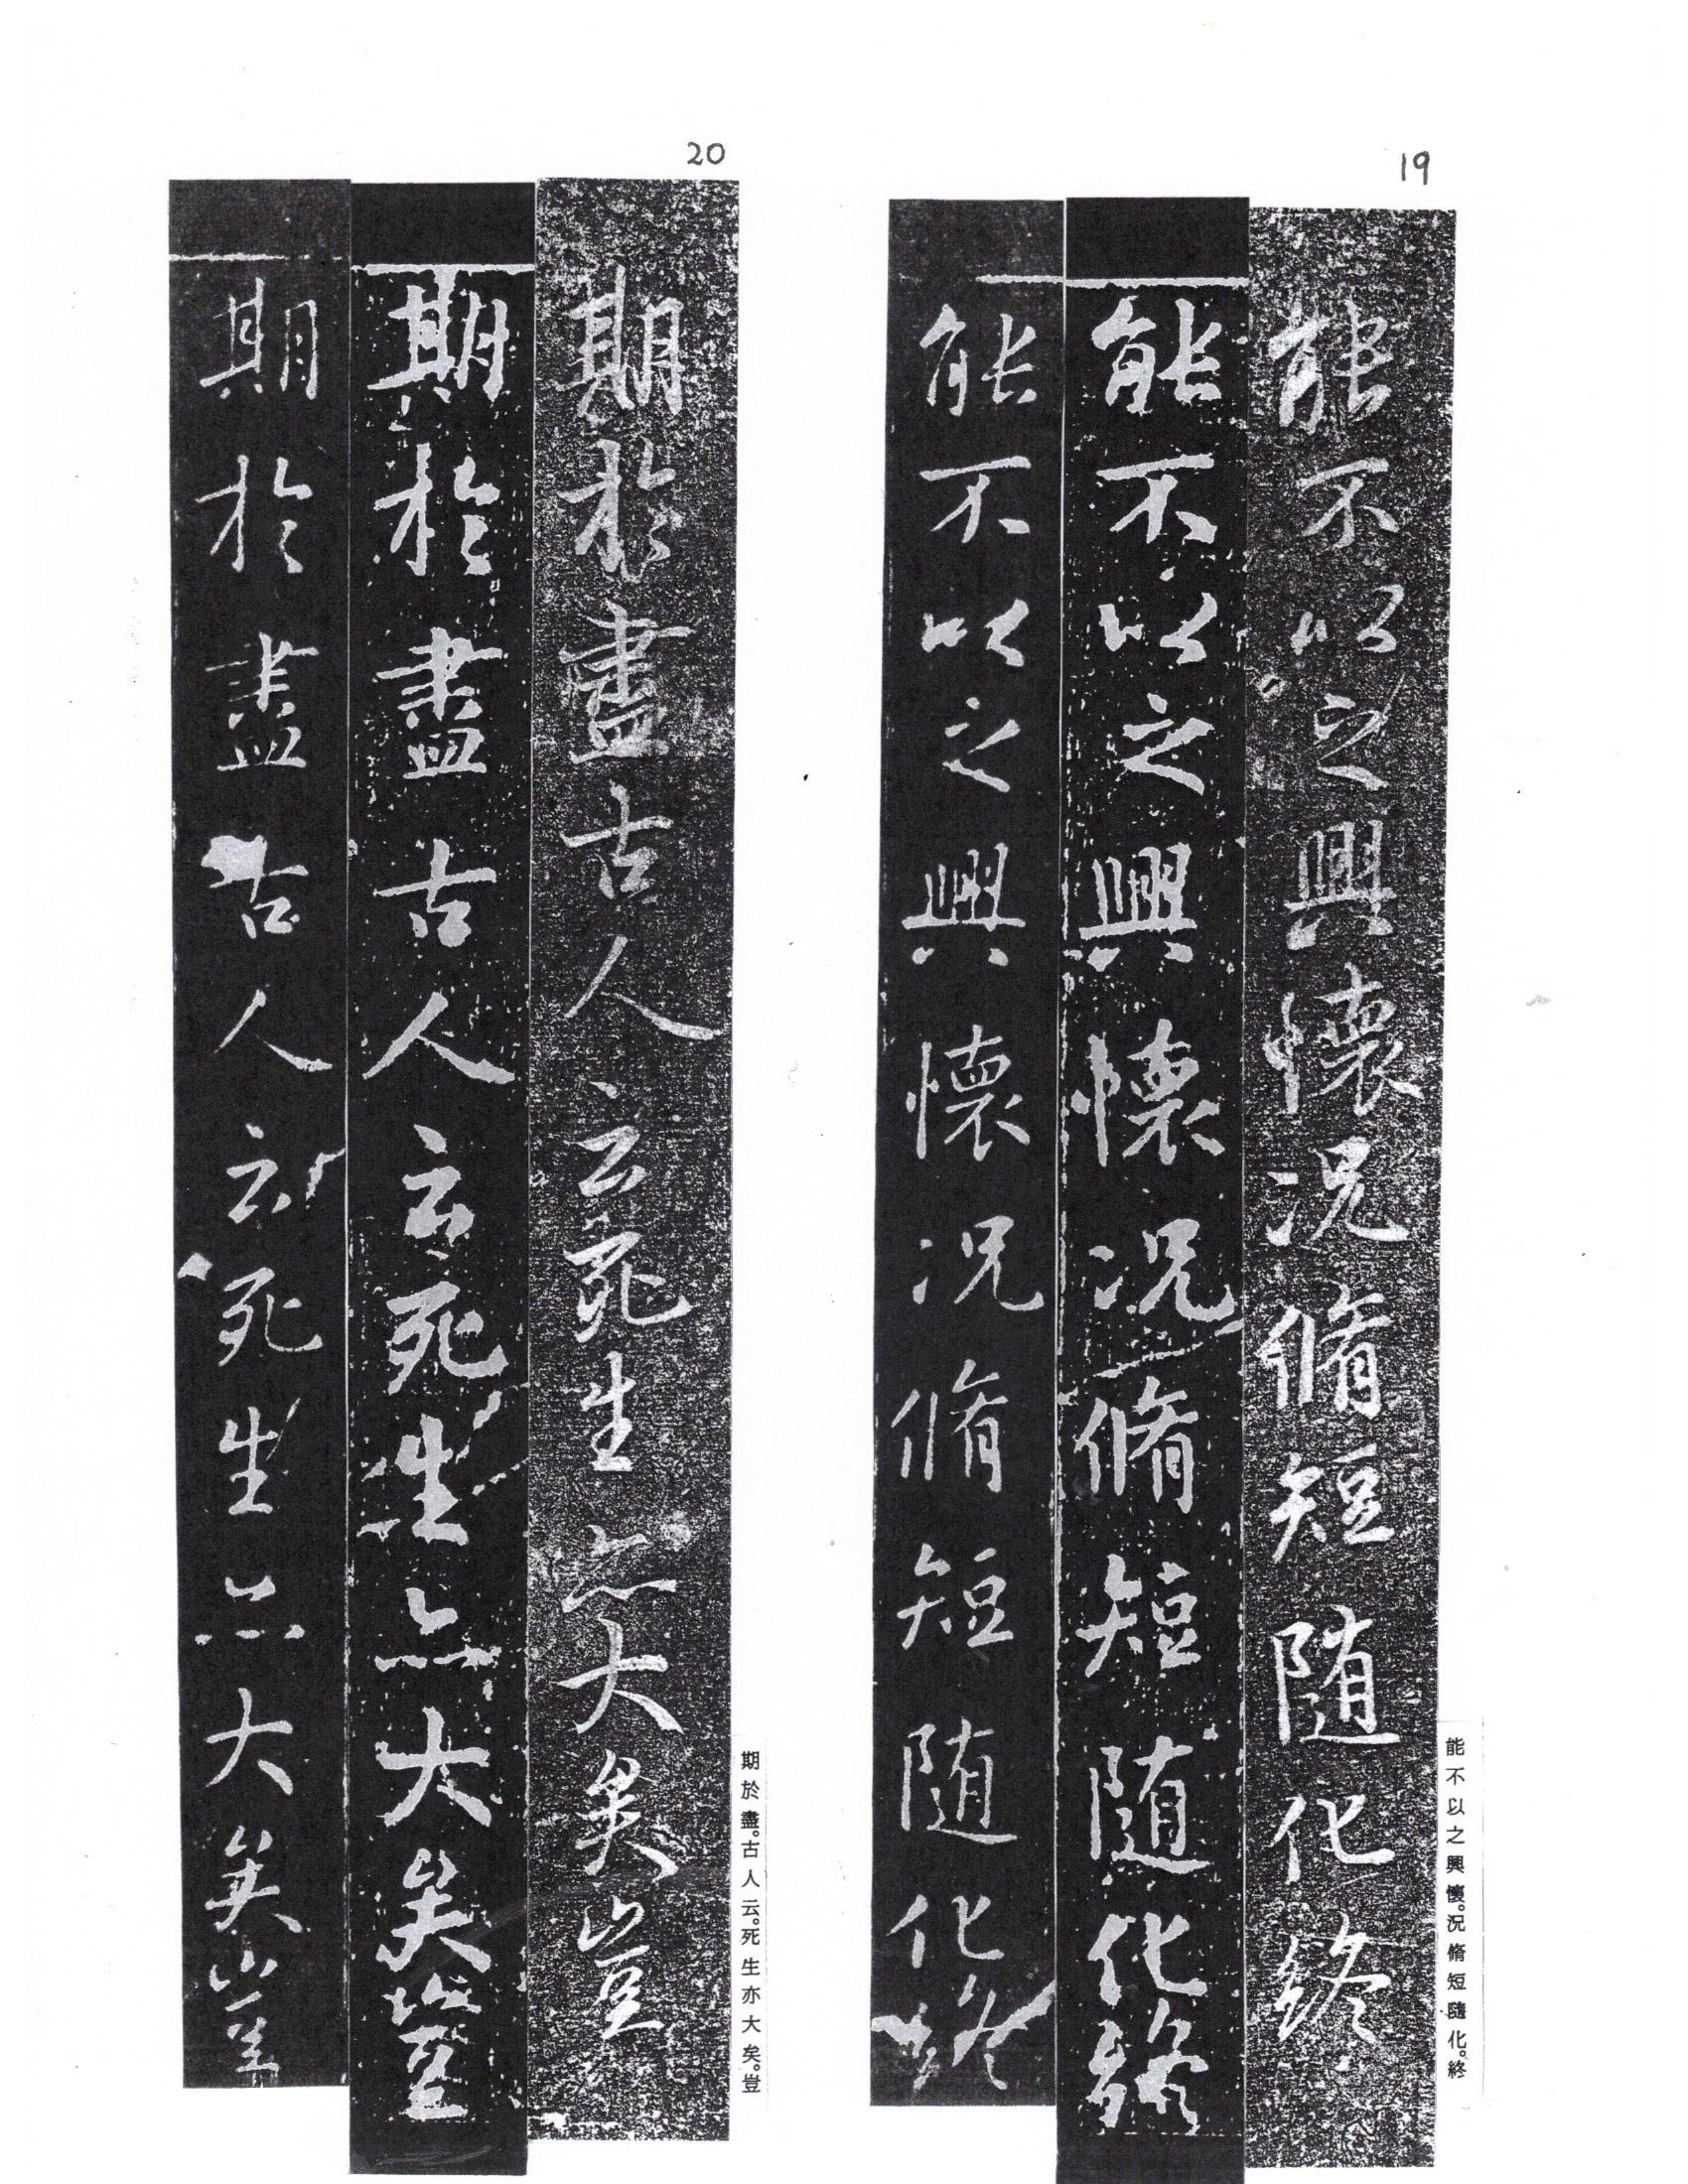 19
能不以之興懷況脩短随化終
能不以之興懷況脩短随化終
能不以之興懷況脩短随化終
能不以之興懷。況脩短隨化。終
20
期於盡古人云死生亦大矣豈
期於盡古人云死生亦大矣豈
期於盡古人云死生亦大矣豈
期於盡。古人云。死生亦大矣。豈